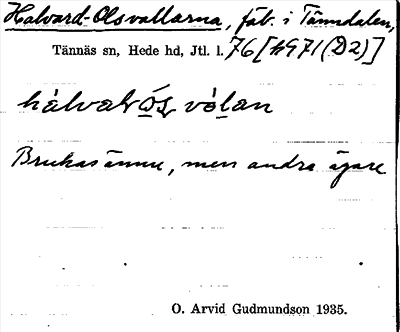 Halvard-Olsvallarna, fäb. i Tänndalen,
Tännäs sn, Hede hd, Jtl. l. 76 [h971(D2)]
hålvaḷ ós vòlan
Brukas ännu, men andra ägare
O. Arvid Gudmundson 1935.